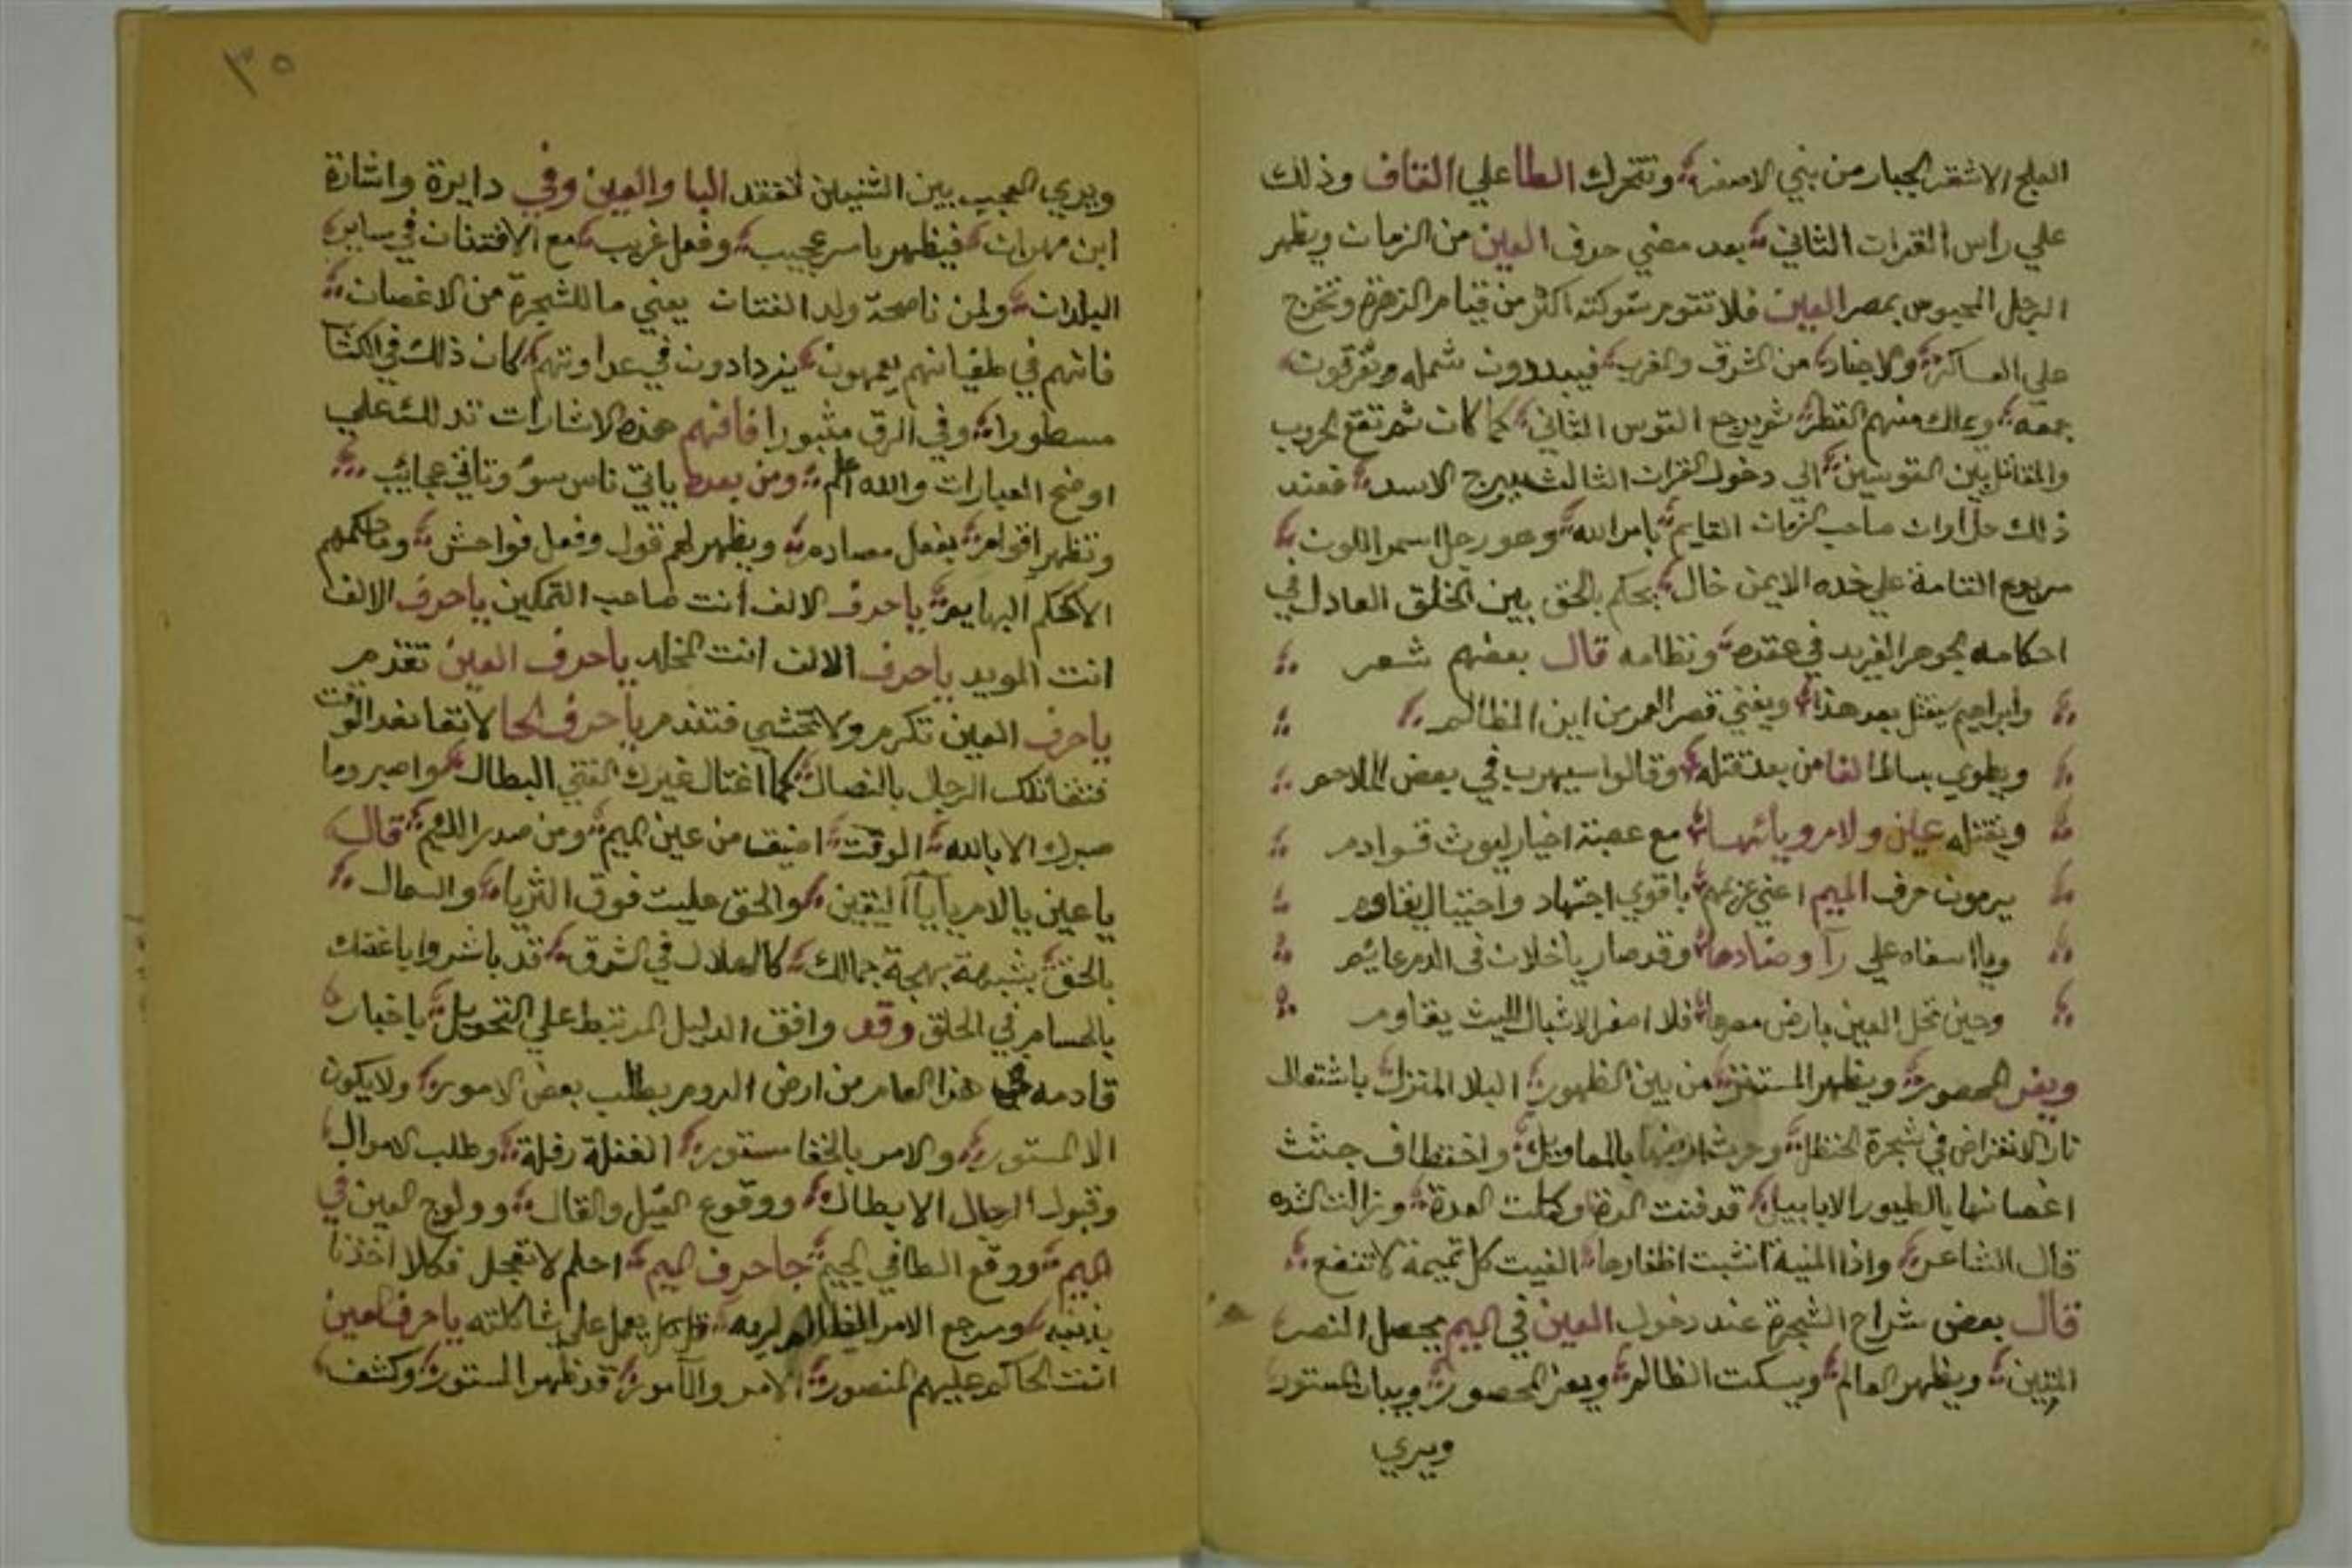 العلج الاشقر الجبار من بني الاصفر وتتحرك الطا علي القاف وذلك
علي راس القران الثاني بعد مضي حرف العين من الزمان ويظهر
الرجل المحبوس بمصر العين فلا تقوم شوكته اكثر من قيام الزهرة وتخرج
علي العساكر والاجناد من الشرق والغرب فيبددون شمله ويفرقون
جمعه ويملك منهم القطر ثم يرجع القوس الثاني كما كان ثم تقع الحروب
والمقاتل بين القوسين الي دخول القران الثالث ببرج الاسد فعند
ذلك حل اوان صاحب الزمان القايم بامر الله وهو رجل اسمر اللون
مربوع القامة علي خده الايمن خال يحكم بالحق بين الخلق العادل في
احكامه الجوهر الفريد في عقده ونظامه قال بعضهم شعر
وابراهيم يقتل بعد هذا ويفني قصر العمر من اين المظالم
ويطوي بساط الفا من بعد قتله وقالوا سيهرب في بعض الملاحم
ويقتله عين ولام ويائها مع عصبة اخيار ليوث قوادم
يرمون حرف الميم اعني عزيمهم باقوي اجتهاد واحتيال
ويا اسفاه علي رآ وضادها وقد صار ياخلان في الدم عايم
وحين تحل العين بارض مصرها فلا اصغر الاشبال الليث يقاوم
ويفر المحصور ويظهر المستقر من بين الظهور البلا المنزل باشتعال
نار الانقراض في شجرة الحنظل وحرث ارضها بالمعاويل واختطاف جثث
اغصانها بالطيور الابابيل قد فنت المدة وكملت العدة وزالت الشده
قال الشاعر واذا المنية انشبت اظفارها الفيت كل تميمة لا تنفع
قال بعض شراح الشجرة عند دخول العين في الميم يحصل النصر
المتين ويظهر العالم ويسكت الظالم ويعز المحصور ويبان المستور
ويري
٣٥
ويري العجيب بين الشنيين لفقد البا والعين وفي دايرة واشارة
ابن مهران فيظهر باسر عجيب وفعل غريب مع الافتنان في ساير
البلدان ولمن ناصحه ولد الفتان يعني ما للشجرة من الاغصان
فانهم في طغيانهم يعمهون يزدادون في عداوتهم كان ذلك في الكتاب
مسطورا وفي الرق مثبورا فافهم هذه الاشارات تدلك علي
اوضح العبارات والله اعلم ومن بعدها ياتي ناس سوء وتاتي عجائب
وتظهر اقوام بفعل مصاده ويظهر لهم قول وفعل فواحش وما حكمهم
الا كحكم البهايم يا حرف الالف انت صاحب التمكين يا حرف الالف
انت المويد يا حرف الالف انت المخلد يا حرف العين تقدم
يا حرف العين تكرم ولا تختشي فتندم يا حرف الحا لا تعاند الوقت
فتقاتلك الرجال بالنصال كما اغتال غيرك الفتي البطال واصبر وما
صبرك الا بالله الوقت اضيق من عين الميم ومن صدر اللئيم قال
يا عين يا لام يا يآ اليقين والحق عليت فوق الثريا والسمال
بالحق بشبهة بهجة جمالك كالهلال في الشرق قد باشروا باغتك
بالحسام في الحلق وقد وافق الدليل المرتبط علي التحويل باخبار
قادمه في هذا العام من ارض الروم بطلب بعض الامور ولا يكون
الا المستور والامر بالخفا مستور الغفلة رفلة وطلب الاموال
وقبول الرجال الابطال ووقوع القيل والقال وولوج العين في
الميم ووقع الطا في الجيم جا حرف الميم احلم لا تعجل فكلا اخذنا
بذنبه ومرجع الامر الظالم لربه قل كل يعمل علي شاكلته يا حرف العين
انت الحاكم عليهم المنصور الامر والآمور قد ظهر المستور وكشف